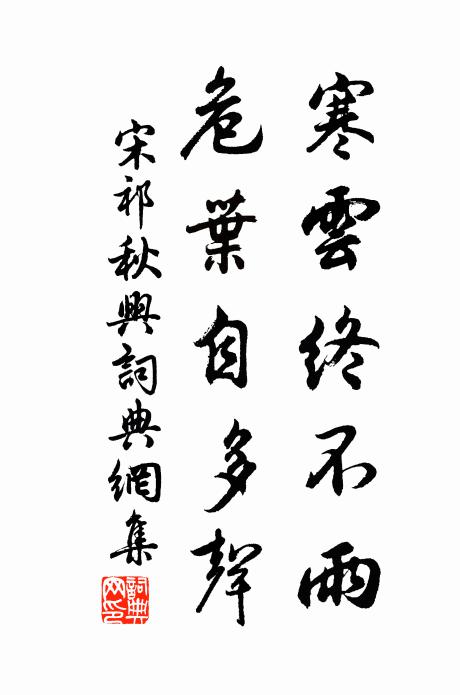 寒雲終不雨
危葉自多聲
宋祁秋興詞典網集
詞典網印